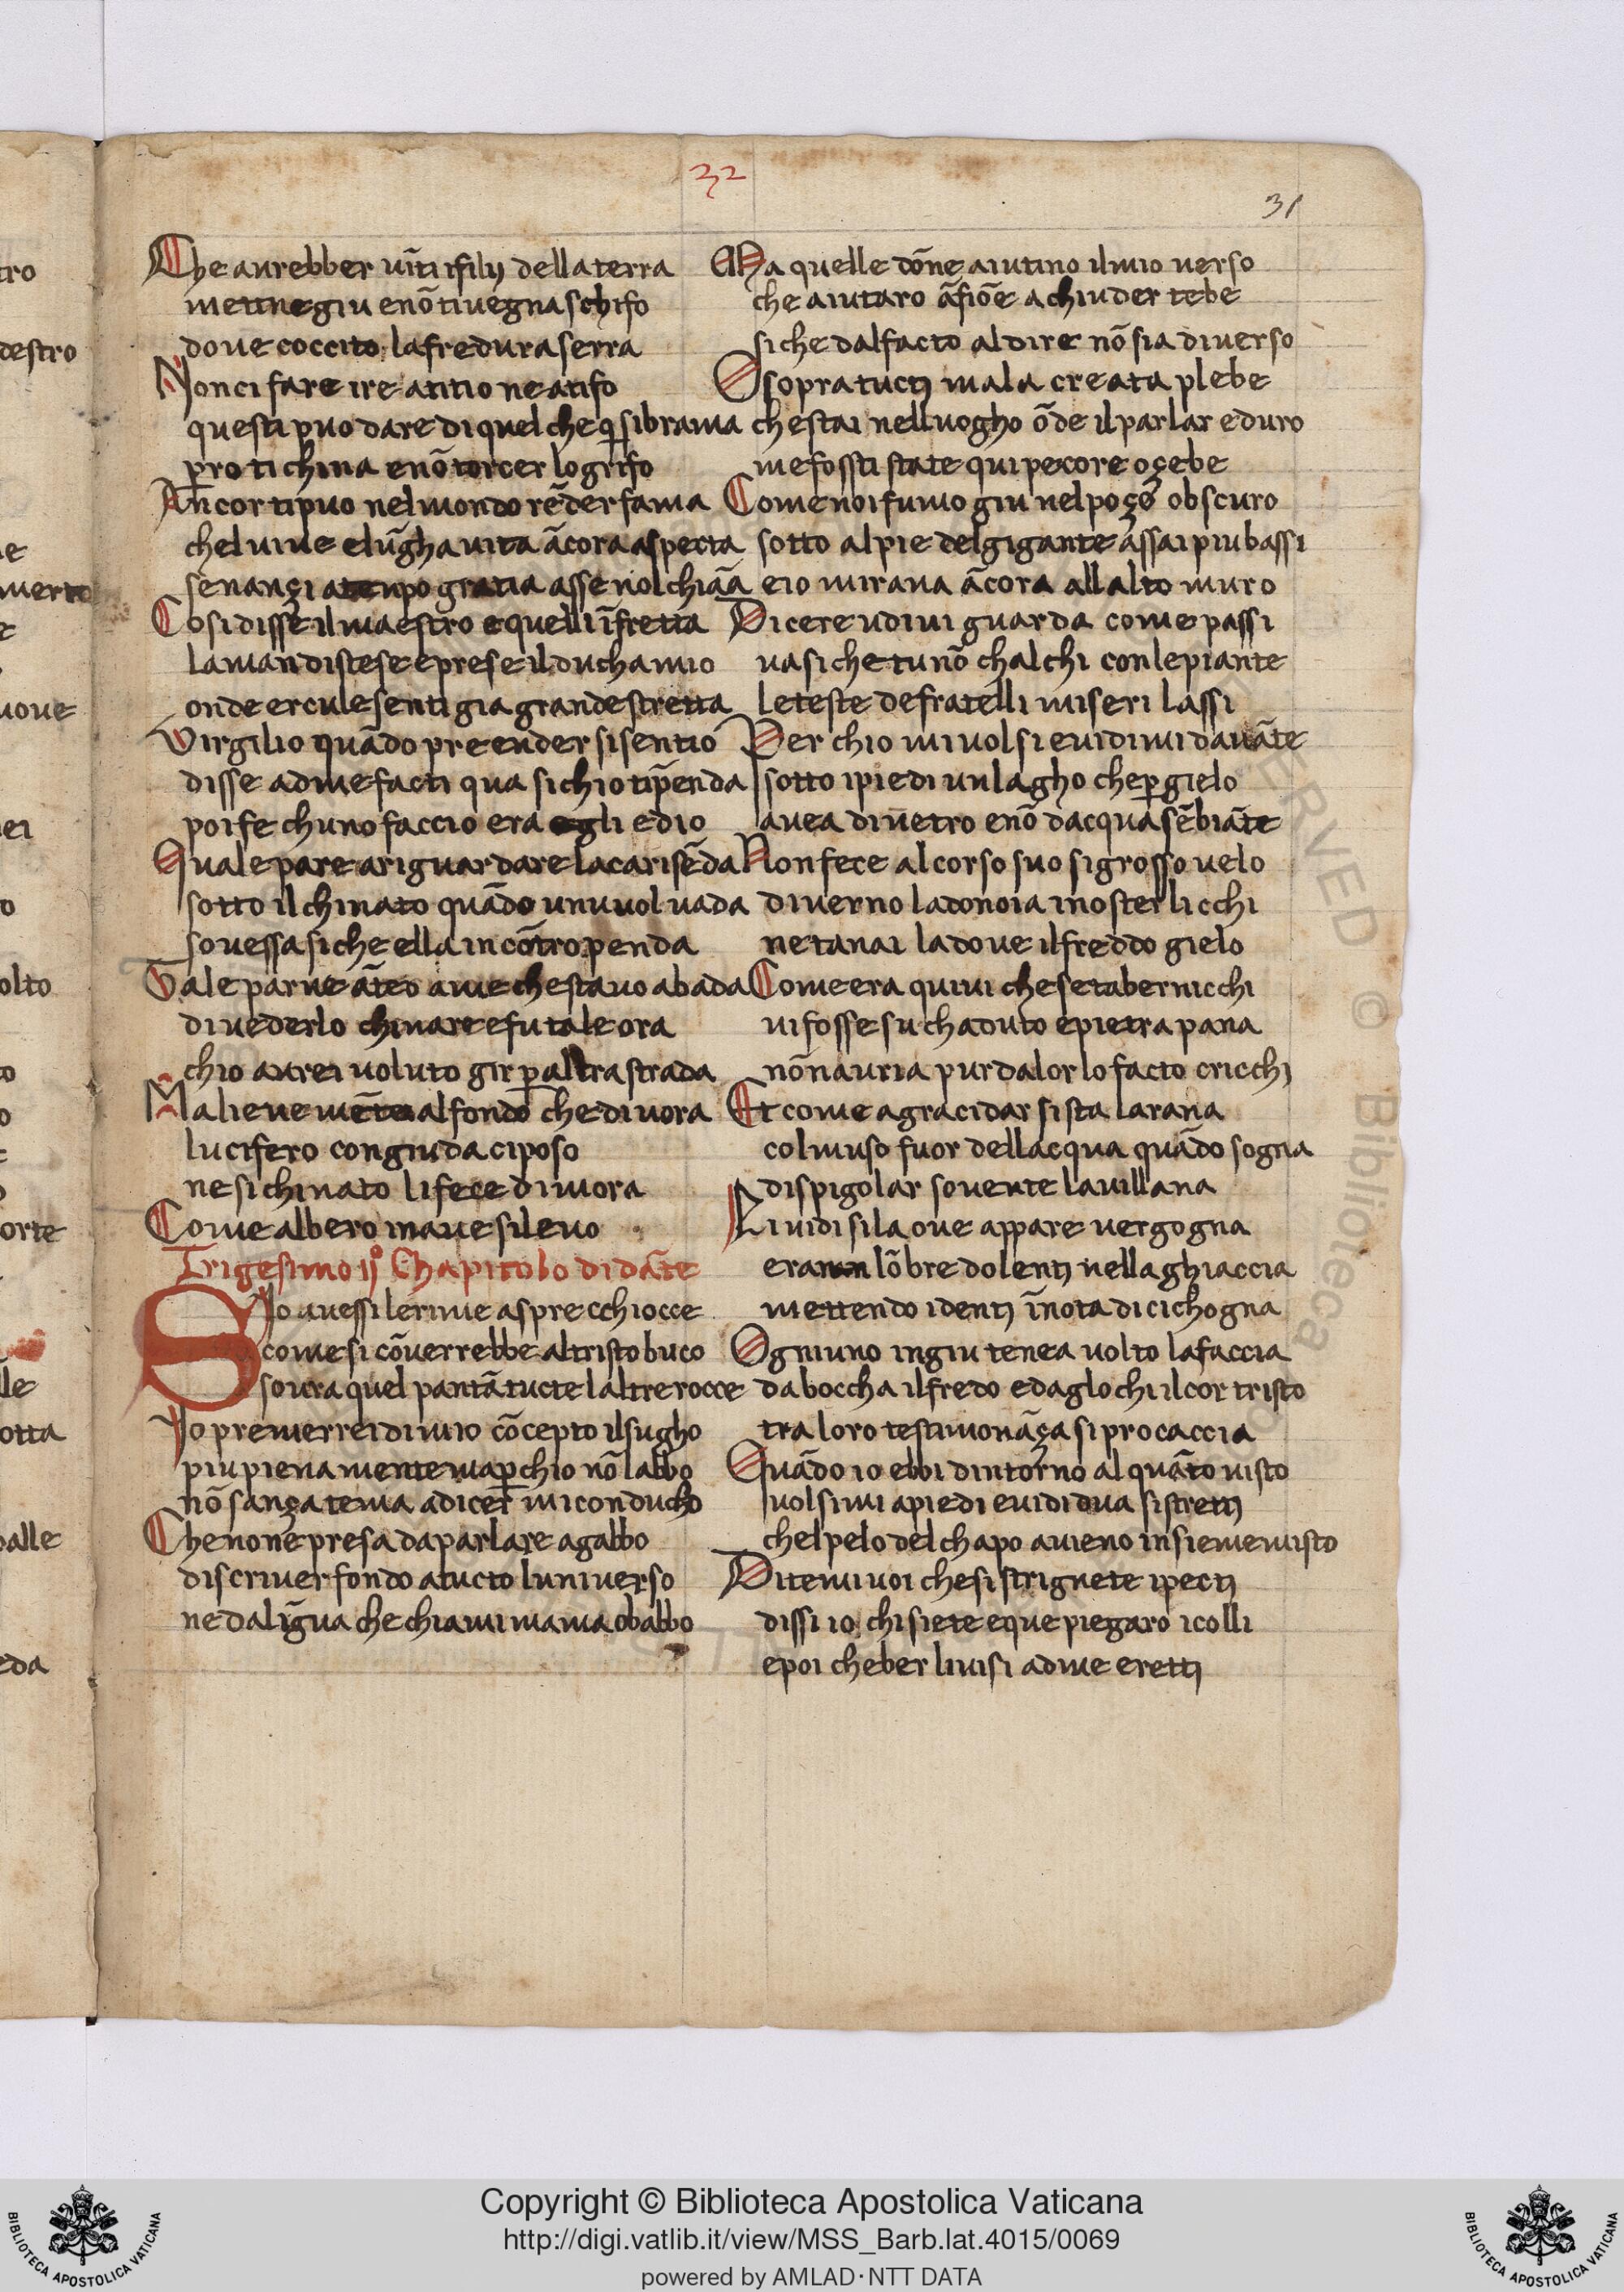 32
31
Che aurebber vīti ifilij dellaterra
mettinegiu enō tiuegna schifo
doue coccito lafredura serra
Non ci fare ire atitio ne atifo
questi puo dare di quel che q̄ sibrama
pero tichina enō torcer logrifo
Ancor tipuo nelmondo rēder fama
chel uiue elūgha uita ācora aspecta
senançi atenpo gratia asse nolchiāa
Cosi disse ilmaestro equelli īfretta
laman distese eprese ilducha mio
onde ercule senti gia grande stretta
Virgilio quādo preender sisentio
disse adme facti qua si chio tip̄enda
poi fe chuno faccio era egli edio
Quale pare ariguardare lacarisēda
sotto ilchinato quādo unuuol uada
souessa siche ella incōtro penda
Tale parue āteo ame che stauo abada
diuederlo chinare efu tale ora
chio aurei uoluto gir p altra strada
Ma lieue mēte alfondo che diuora
lucifero con giuda ciposo
ne si chinato lifece dimora
Come albero inaue sileuo
Trigesimo ijº Chapitolo didāte
S Io auessi lerime aspre cchiocce
come si cōuerrebbe altristo buco
soura quel pantā tucte laltre rocce
Io premerrei dimio cōcepto ilsugho
piu piena mente ma p chio nō labbo
nō sança tema adicer miconducho
Che none presa daparlare agabbo
discriuer fondo atucto luniuerso
ne da līgua che chiami mama obabbo
Ma quelle dōne aiutino ilmio uerso
che aiutaro āfiōe achiuder tebe
siche dalfacto aldire nō sia diuerso
O sopra tuctj mala creata plebe
che stai nelluogho ōde ilparlar eduro
me fossti state qui pecore oçebe
Come noi fumo giu nelpoço obscuro
sotto alpie delgigante assai piu bassi
eio miraua ācora allalto muro
Dicere udimi guarda come passi
ua siche tu nō chalchi conlepiante
leteste defratelli miseri lassi
Per chio miuolsi euidimi dauāte
sotto ipiedi unlagho che p gielo
auea diuetro enō dacqua sēbiāte
Non fece alcorso suo sigrosso uelo
diuerno ladonoia inosterlicchi
ne tanai ladoue ilfreddo gielo
Come era quiui che se tabernicchi
uifosse su chaduto epietra pana
nō nauria pur dalorlo facto cricchj
Et come agracidar sista larana
colmuso fuor dellacqua quādo sogna
dispigolar souente lauillana
Liuidi sila oue appare uergogna
eran lōbre dolentj nellaghiaccia
mettendo identj īnota dicichogna
Ogniuno ingiu tenea uolto lafaccia
da boccha ilfredo edaglochi ilcor tristo
tra loro testimonāça si procaccia
Quādo io ebbi dintorno alquāto uisto
uolsimi apiedi euidi dua si strettj
chelpelo del chapo auieno insieme misto
Ditemi uoi che si strignete ipectj
dissi io chi siete eque piegaro icolli
epoi cheber liuisi adme erettj
Copyright © Biblioteca Apostolica Vaticana
http://digi.vatlib.it/view/MSS_Barb.lat.4015/0069
powered by AMLAD·NTT DATA
BIBLIOTECA APOSTOLICA VATICANA
BIBLIOTECA APOSTOLICA VATICANA